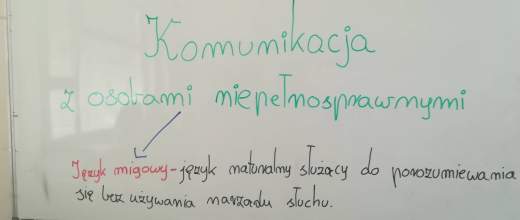 Komunikacja
z osobami niepełnosprawnymi
Język migowy - język naturalny służący do porozumiewania
się bez używania narządu słuchu.